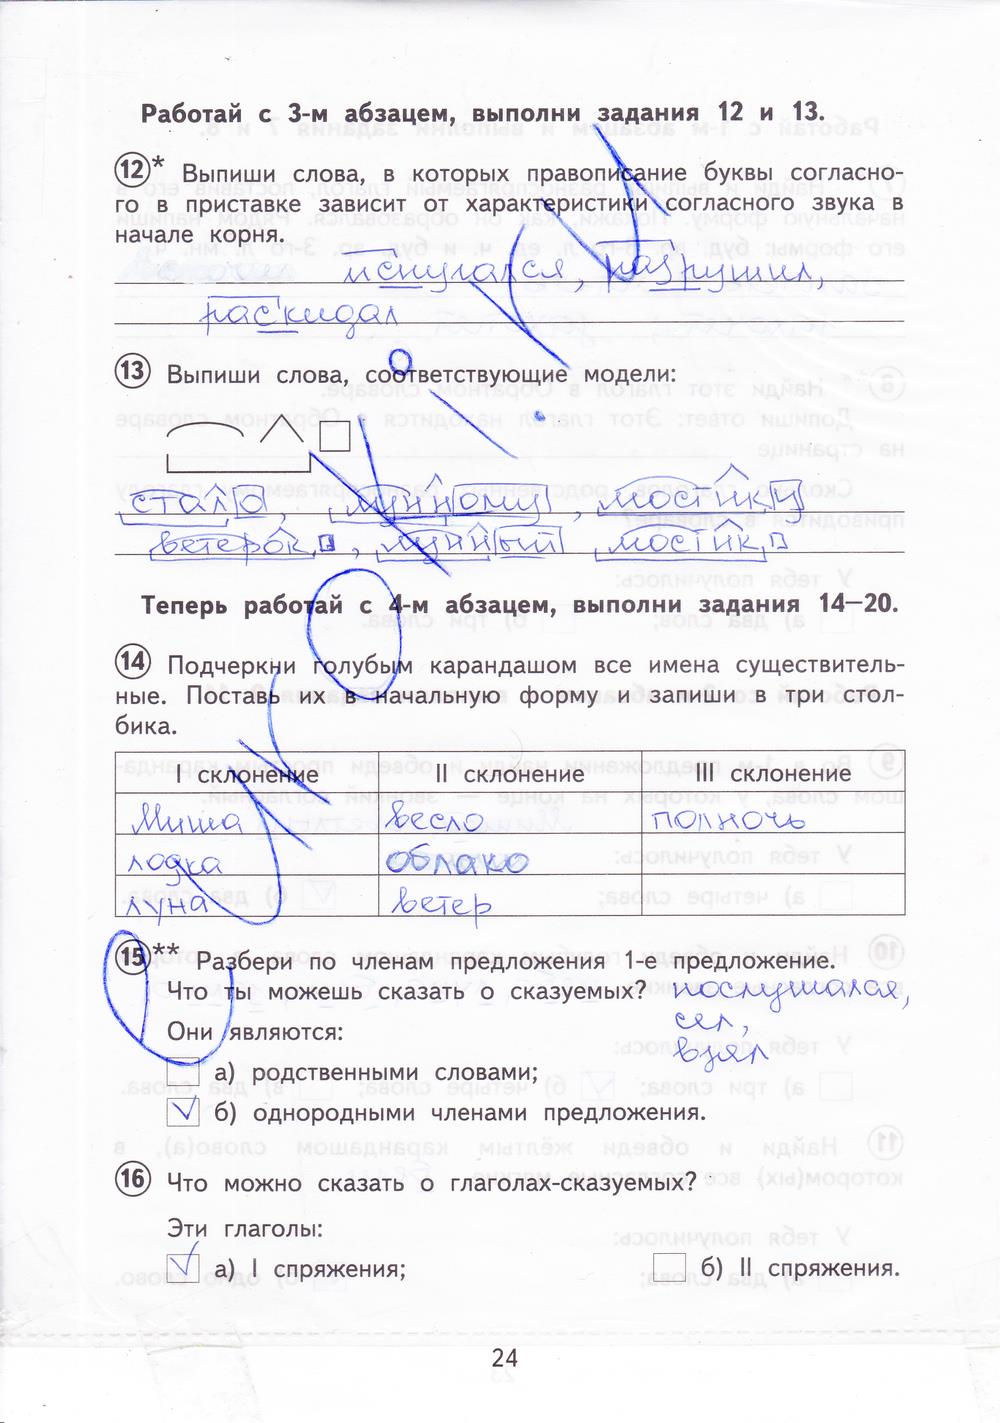 Работай с 3-м абзацем, выполни задания 12 и 13.
12* Выпиши слова, в которых правописание буквы согласно-
го в приставке зависит от характеристики согласного звука в
начале корня.
испугался, разрушил,
раскидал
13 Выпиши слова, соответствующие модели:
стало, лунному, мостику
ветерок, лунный, мостик
Теперь работай с 4-м абзацем, выполни задания 14–20.
14 Подчеркни голубым карандашом все имена существитель-
ные. Поставь их в начальную форму и запиши в три стол-
бика.
I склонение II склонение III склонение
Миша весло полночь
лодка облако
луна ветер
15** Разбери по членам предложения 1-е предложение.
Что ты можешь сказать о сказуемых? послушался,
сел,
Они являются:
взял
а) родственными словами;
б) однородными членами предложения.
16 Что можно сказать о глаголах-сказуемых?
Эти глаголы:
а) I спряжения; б) II спряжения.
24